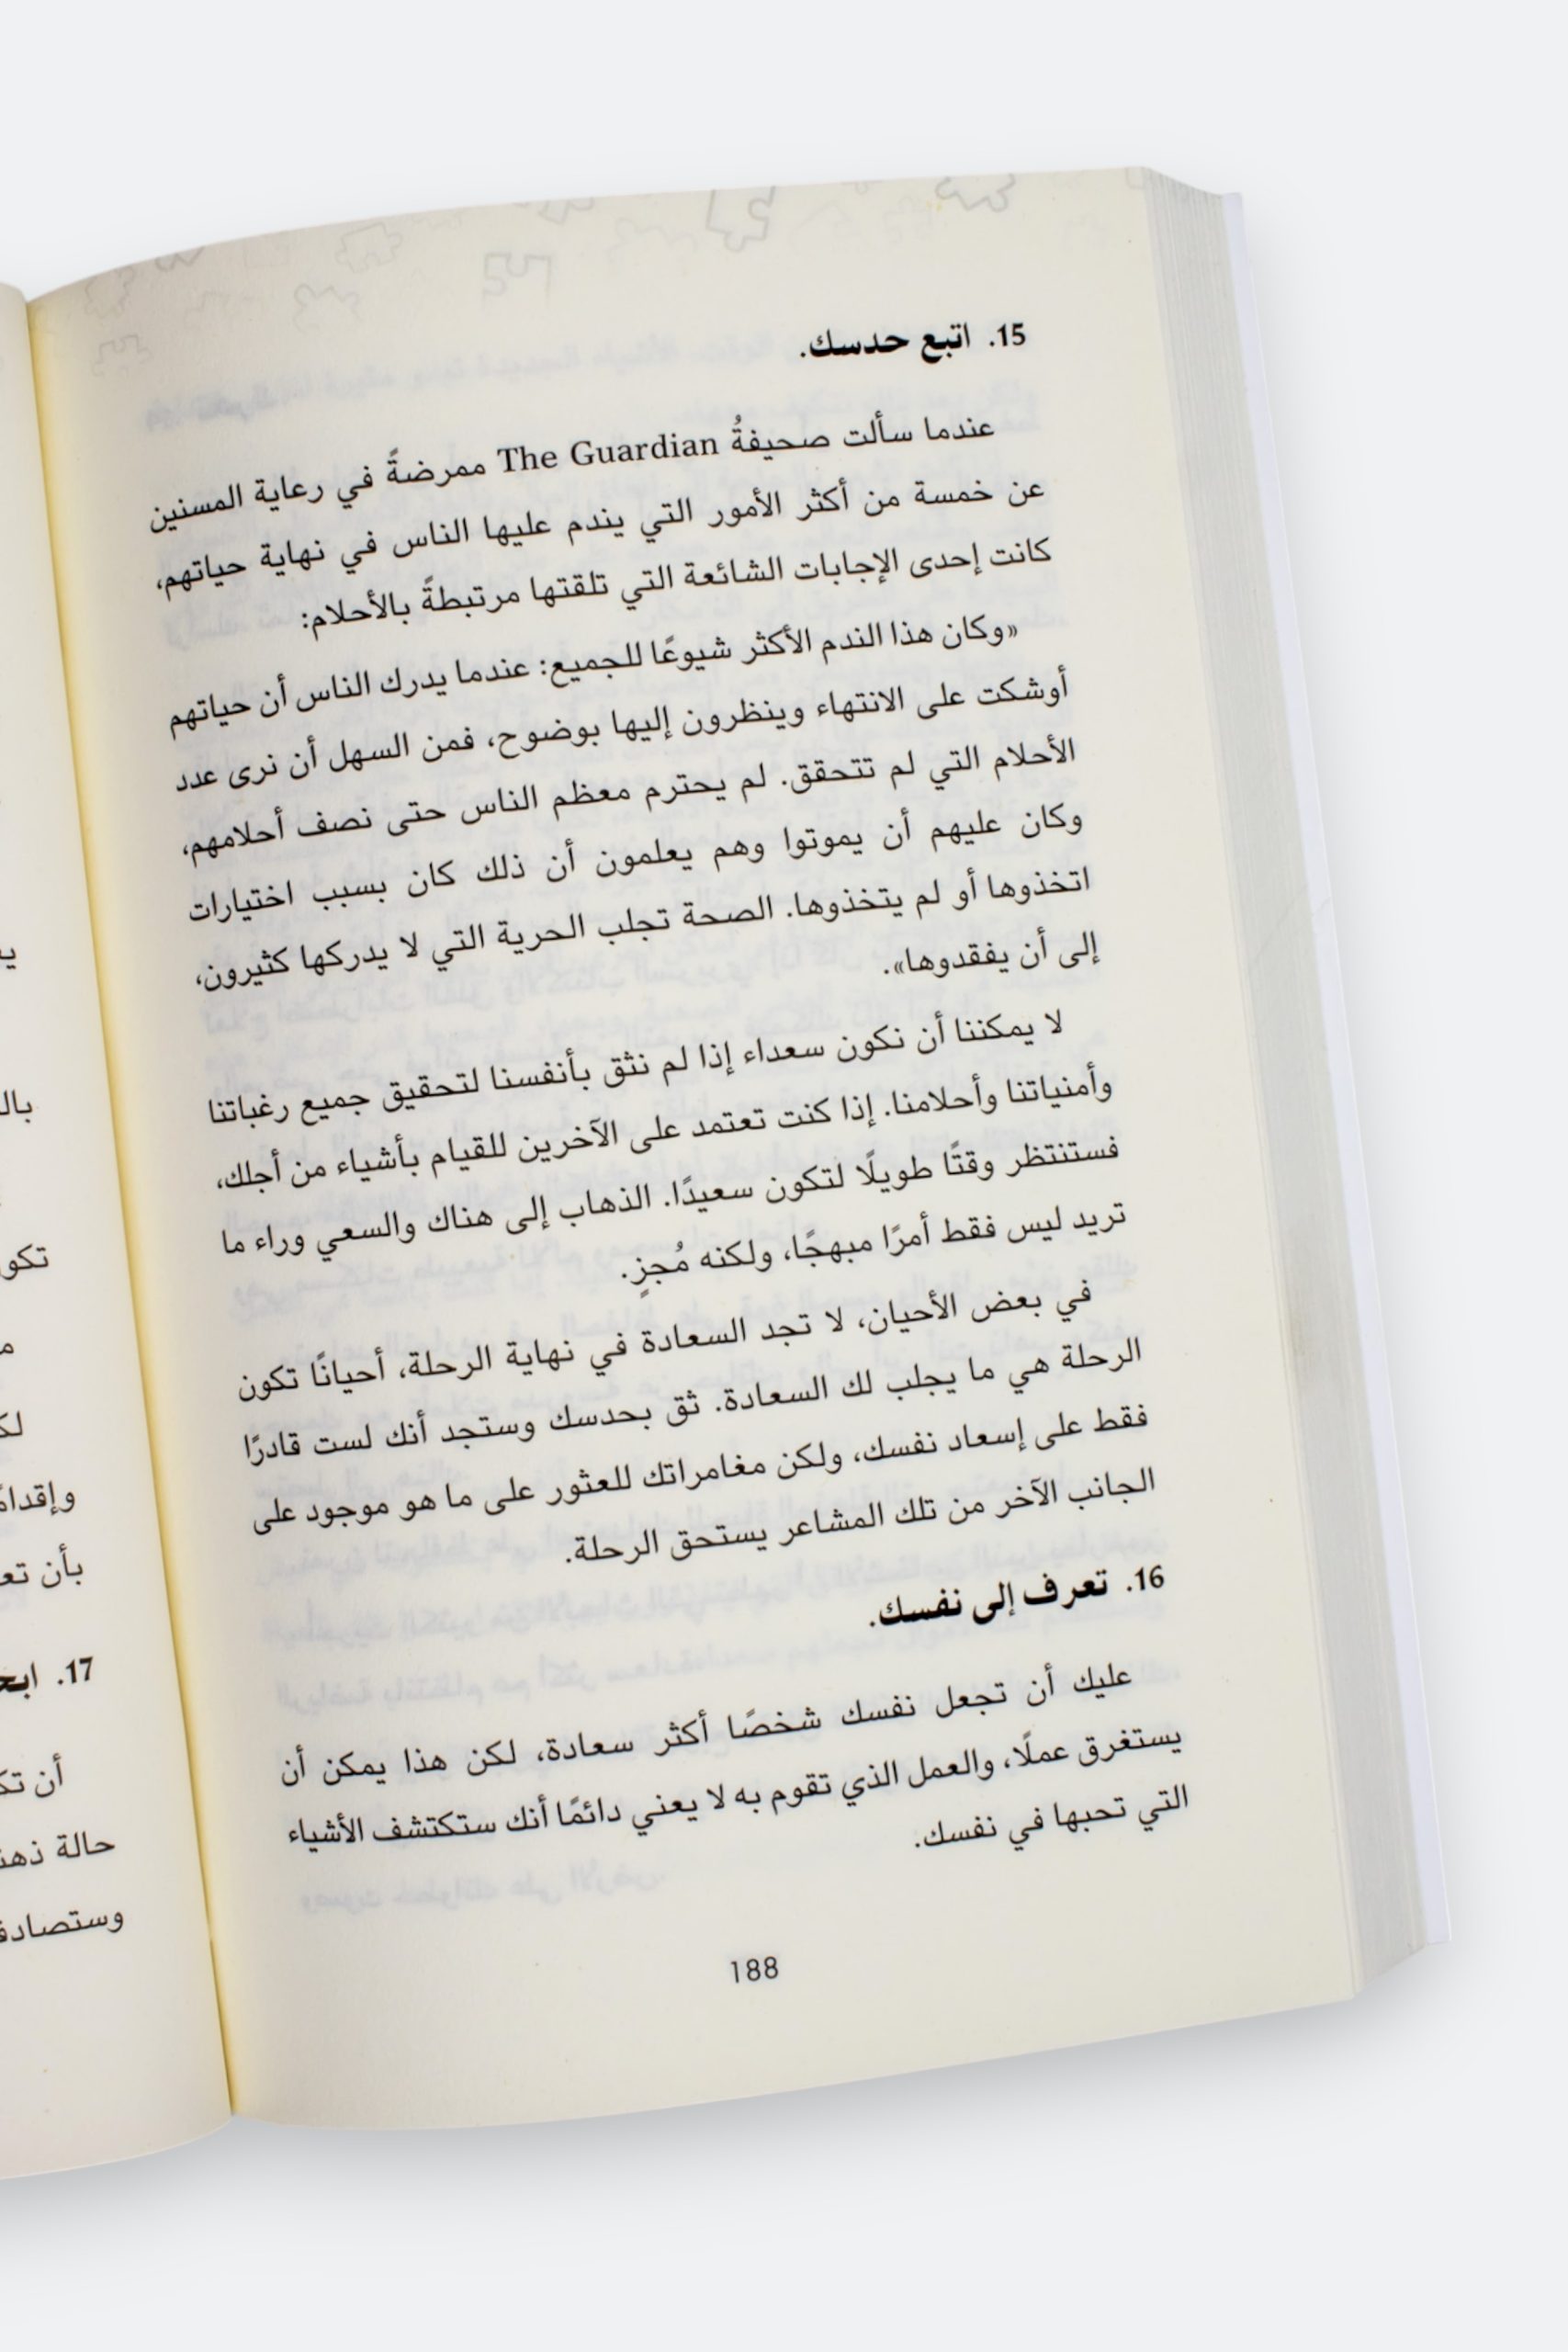 15. اتبع حدسك.
عندما سألت صحيفةُ The Guardian ممرضةً في رعاية المسنين
عن خمسة من أكثر الأمور التي يندم عليها الناس في نهاية حياتهم،
كانت إحدى الإجابات الشائعة التي تلقتها مرتبطةً بالأحلام:
«وكان هذا الندم الأكثر شيوعًا للجميع: عندما يدرك الناس أن حياتهم
أوشكت على الانتهاء وينظرون إليها بوضوح، فمن السهل أن نرى عدد
الأحلام التي لم تتحقق. لم يحترم معظم الناس حتى نصف أحلامهم،
وكان عليهم أن يموتوا وهم يعلمون أن ذلك كان بسبب اختيارات
اتخذوها أو لم يتخذوها. الصحة تجلب الحرية التي لا يدركها كثيرون،
إلى أن يفقدوها».
لا يمكننا أن نكون سعداء إذا لم نثق بأنفسنا لتحقيق جميع رغباتنا
وأمنياتنا وأحلامنا. إذا كنت تعتمد على الآخرين للقيام بأشياء من أجلك،
فستنتظر وقتًا طويلًا لتكون سعيدًا. الذهاب إلى هناك والسعي وراء ما
تريد ليس فقط أمرًا مبهجًا، ولكنه مُجزٍ.
في بعض الأحيان، لا تجد السعادة في نهاية الرحلة، أحيانًا تكون
الرحلة هي ما يجلب لك السعادة. ثق بحدسك وستجد أنك لست قادرًا
فقط على إسعاد نفسك، ولكن مغامراتك للعثور على ما هو موجود على
الجانب الآخر من تلك المشاعر يستحق الرحلة.
16. تعرف إلى نفسك.
عليك أن تجعل نفسك شخصًا أكثر سعادة، لكن هذا يمكن أن
يستغرق عملًا، والعمل الذي تقوم به لا يعني دائمًا أنك ستكتشف الأشياء
التي تحبها في نفسك.
188
بأن
17.
أن
حالة